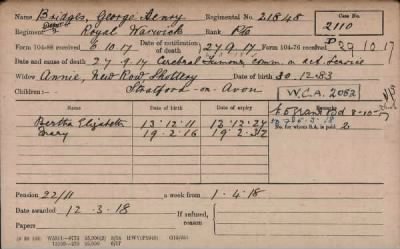 Name Bridges, George Henry Regimental No. 21848 Case No. 2110
Regiment Royal Warwick Rank Pte
Form 104-88 received 6.10.17 Date of notification of death 27.9.17 Form 104-76 received 29.10.17
Date and cause of death 27.9.17 Cerebral Tumour, comm. on act. service
Widow Annie, New Row, Shottery Date of birth 30.12.83
Children:— Stratford-on-Avon W.C.A. 2052
Date of birth Date of expiration Remarks
Bertha Elizabeth 13.12.11 12.12.27
Mary 19.2.16 19.2.32 No. for whom S.A. is paid 2
Pension 22/11 a week from 1.4.18
Date awarded 12.3.18 If refused, reason
Papers